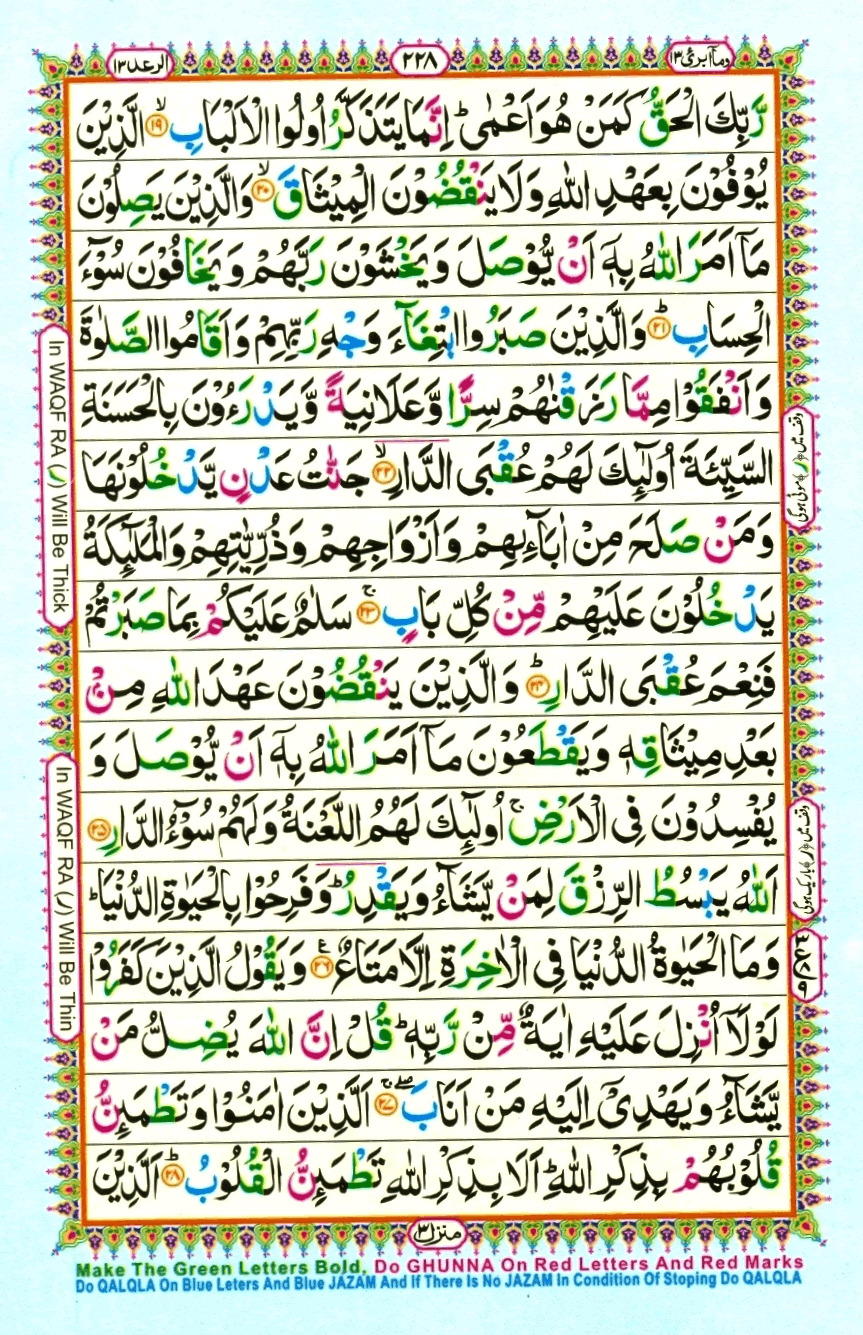 الرعد ١٣
٢٢٨
ومآ ابرئ ١٣
رَّبِّكَ الْحَقُّ كَمَنْ هُوَ اَعْمٰىؕ اِنَّمَا يَتَذَكَّرُ اُولُوا الْاَلْبَابِۙ‏﴿۱۹﴾ الَّذِيْنَ
يُوْفُوْنَ بِعَهْدِ اللّٰهِ وَلَا يَنْقُضُوْنَ الْمِيْثَاقَۙ‏﴿۲۰﴾ وَالَّذِيْنَ يَصِلُوْنَ
مَاۤ اَمَرَ اللّٰهُ بِهٖۤ اَنْ يُّوْصَلَ وَيَخْشَوْنَ رَبَّهُمْ وَيَخَافُوْنَ سُوْٓءَ
الْحِسَابِؕ‏﴿۲۱﴾ وَالَّذِيْنَ صَبَرُوا ابْتِغَآءَ وَجْهِ رَبِّهِمْ وَاَقَامُوا الصَّلٰوةَ
وَاَنْفَقُوْا مِمَّا رَزَقْنٰهُمْ سِرًّا وَّعَلَانِيَةً وَّيَدْرَءُوْنَ بِالْحَسَنَةِ
السَّيِّئَةَ اُولٰٓئِكَ لَهُمْ عُقْبَى الدَّارِۙ‏﴿۲۲﴾ جَنّٰتُ عَدْنٍ يَّدْخُلُوْنَهَا
وَمَنْ صَلَحَ مِنْ اٰبَآءِهِمْ وَاَزْوَاجِهِمْ وَذُرِّيّٰتِهِمْ وَالْمَلٰٓئِكَةُ
يَدْخُلُوْنَ عَلَيْهِمْ مِّنْ كُلِّ بَابٍۚ‏﴿۲۳﴾ سَلٰمٌ عَلَيْكُمْ بِمَا صَبَرْتُمْ
فَنِعْمَ عُقْبَى الدَّارِؕ‏﴿۲۴﴾ وَالَّذِيْنَ يَنْقُضُوْنَ عَهْدَ اللّٰهِ مِنْۢ
بَعْدِ مِيْثَاقِهٖ وَيَقْطَعُوْنَ مَاۤ اَمَرَ اللّٰهُ بِهٖۤ اَنْ يُّوْصَلَ وَ
يُفْسِدُوْنَ فِى الْاَرْضِۙ اُولٰٓئِكَ لَهُمُ اللَّعْنَةُ وَلَهُمْ سُوْٓءُ الدَّارِ‏﴿۲۵﴾
اَللّٰهُ يَبْسُطُ الرِّزْقَ لِمَنْ يَّشَآءُ وَيَقْدِرُؕ وَفَرِحُوْا بِالْحَيٰوةِ الدُّنْيَاؕ
وَمَا الْحَيٰوةُ الدُّنْيَا فِى الْاٰخِرَةِ اِلَّا مَتَاعٌ‏﴿۲۶﴾ وَيَقُوْلُ الَّذِيْنَ كَفَرُوْا
لَوْلَاۤ اُنْزِلَ عَلَيْهِ اٰيَةٌ مِّنْ رَّبِّهٖؕ قُلْ اِنَّ اللّٰهَ يُضِلُّ مَنْ
يَّشَآءُ وَيَهْدِىْۤ اِلَيْهِ مَنْ اَنَابَۖۚ‏﴿۲۷﴾ اَلَّذِيْنَ اٰمَنُوْا وَتَطْمَئِنُّ
قُلُوْبُهُمْ بِذِكْرِ اللّٰهِؕ اَلَا بِذِكْرِ اللّٰهِ تَطْمَئِنُّ الْقُلُوْبُؕ‏﴿۲۸﴾ اَلَّذِيْنَ
In WAQF RA (ر) Will Be Thick
In WAQF RA (ر) Will Be Thin
وقف میں ﴿ر﴾ موٹی ہوگی
وقف میں ﴿ر﴾ باریک ہوگی
منزل ٣
Make The Green Letters Bold, Do GHUNNA On Red Letters And Red Marks
Do QALQLA On Blue Leters And Blue JAZAM And If There Is No JAZAM In Condition Of Stoping Do QALQLA